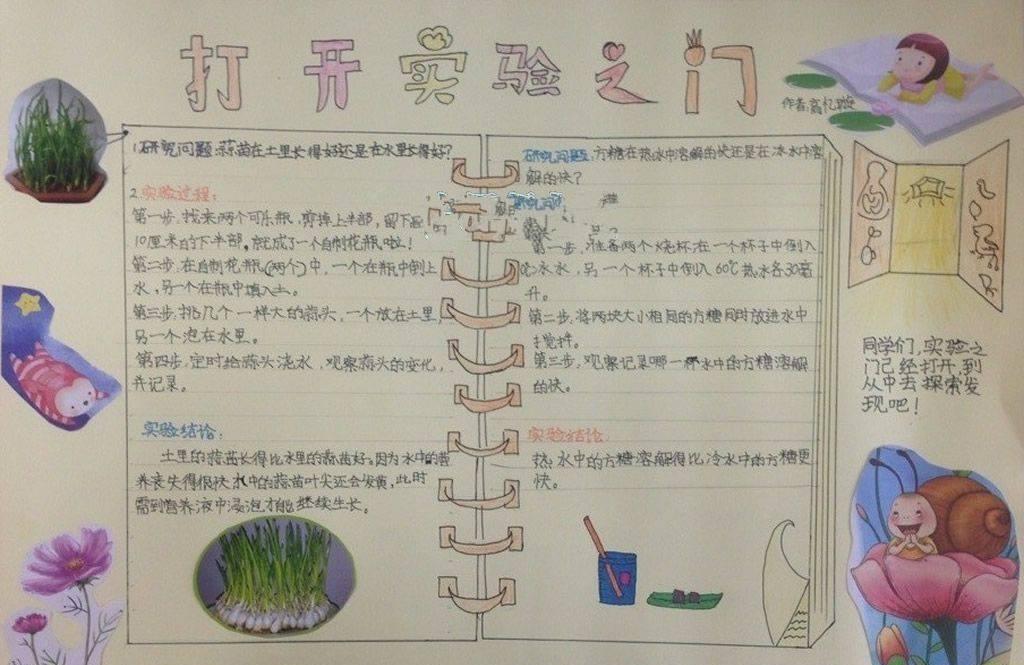 打开实验之门
作者:高
1.研究问题:蒜苗在土里长得好还是在水里长得好?
2.实验过程:
第一步:找来两个可乐瓶,剪掉上半部,留下
10厘米的下半部。就成了一个自制花瓶啦!
第二步:在自制花瓶(两个)中,一个在瓶中倒上
水,另一个在瓶中填入土。
第三步:挑几个一样大的蒜头,一个放在土里,
另一个泡在水里。
第四步:定时给蒜头浇水,观察蒜头的变化,
并记录。
实验结论:
土里的蒜苗长得比水里的蒜苗好。因为水中的营
养丧失得很快水中的蒜苗叶尖还会发黄,此时
需到营养液中浸泡才能继续生长。
研究问题:方糖在热水中溶解的快还是在冰水中溶
解的快?
第一步:准备两个烧杯在一个杯子中倒入
0℃冰水,另一个杯子中倒入60℃热水各30毫
升。
第二步:将两块大小相同的方糖同时放进水中
搅拌。
第三步:观察记录哪一杯水中的方糖溶解
的快。
实验结论:
热水中的方糖溶解得比冷水中的方糖更
快。
同学们,实验之
门已经打开,到
从中去探索发
现吧!